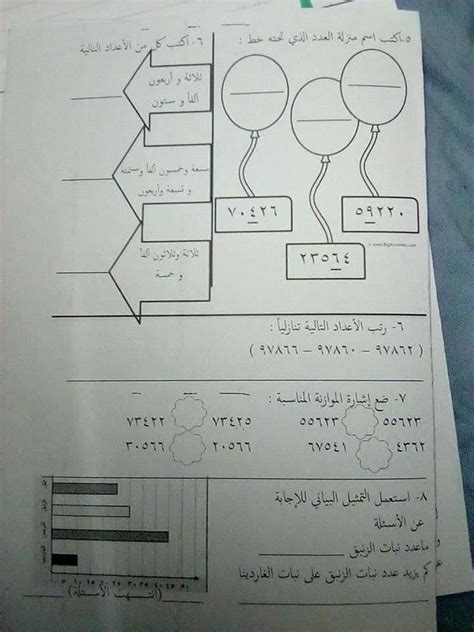 ٥- اكتب اسم منزلة العدد الذي تحته خط :
٥٩٢٢٠
٢٣٥٦٤
٧٠٤٢٦
٦- أكتب كل من الأعداد التالية
ثلاثة و أربعون
ألفاً و ستون
سبعة وخمسون ألفاً وستمئة
و تسعة وأربعون
ثلاثة وثلاثون ألفاً
و خمسة
٦- رتب الأعداد التالية تنازلياً :
( ٩٧٨٦٢ – ٩٧٨٦٠ – ٩٧٨٦٦ )
٧- ضع إشارة الموازنة المناسبة :
٥٥٦٢٣ ٥٥٦٢٣ ٧٣٤٢٥ ٧٣٤٢٢
٤٣٦٢ ٦٧٥٤١ ٢٠٥٦٦ ٣٠٥٦٦
٨- استعمل التمثيل البياني للإجابة
عن الأسئلة
ماعدد نبات الزنبق
كم يزيد عدد نبات الزنبق على نبات الغاردينا
(انتهت الأسئلة)